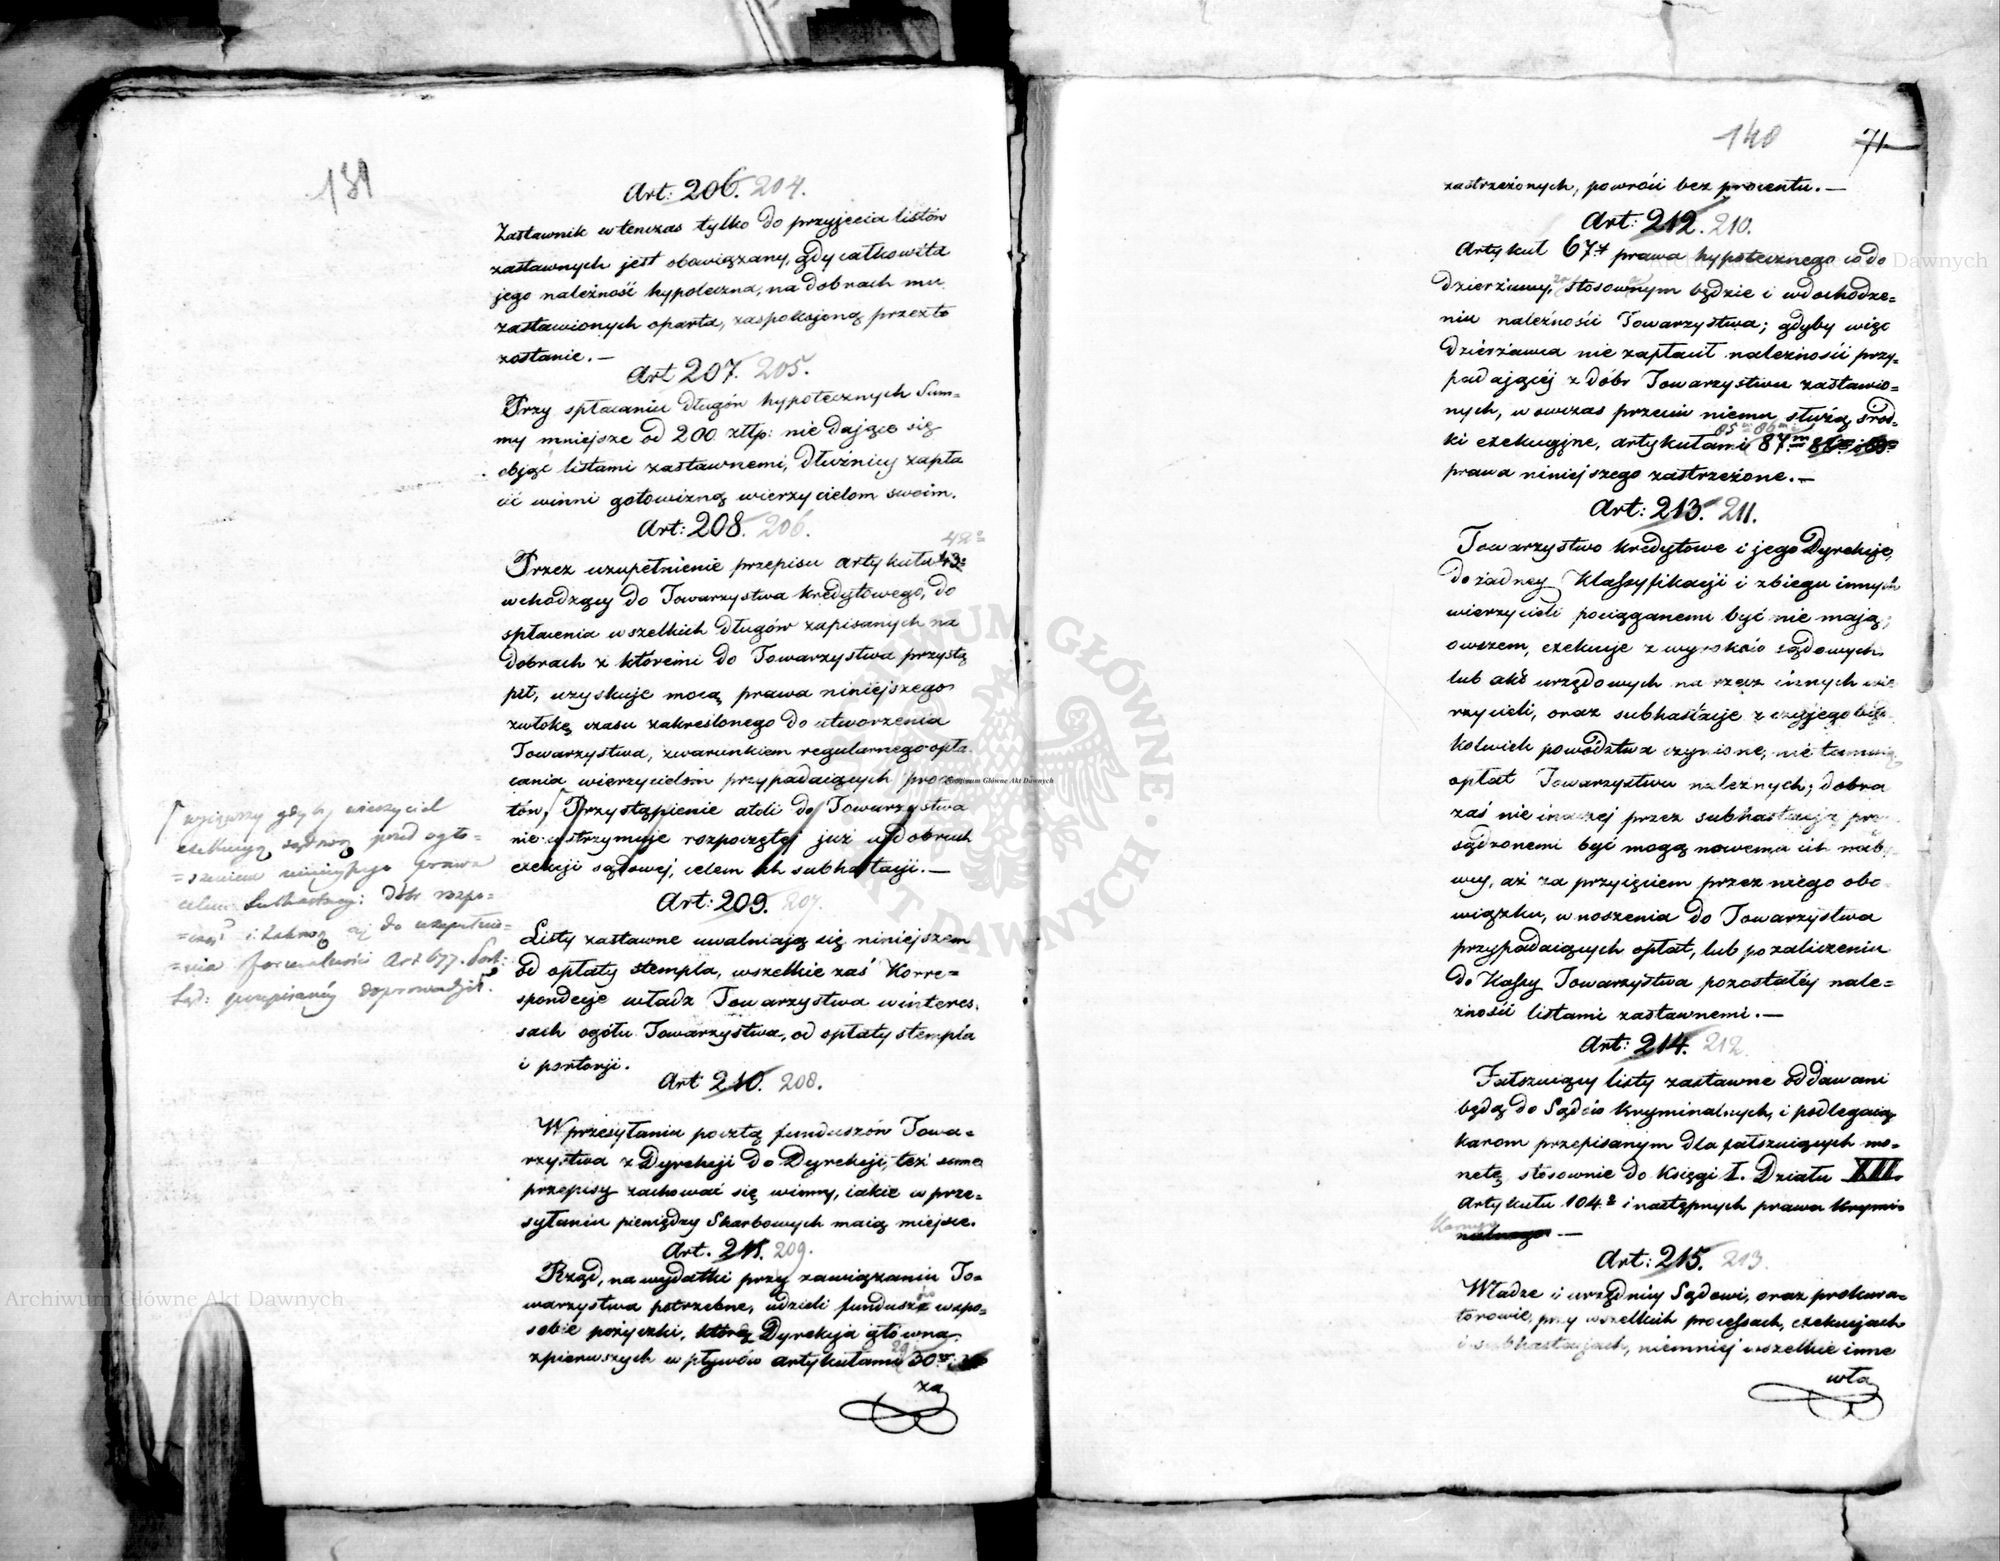 139
Art: 206. 204.
Zastawnik wtenczas tylko do przyjęcia listów
zastawnych jest obowiązany, gdy całkowita
jego należność hypoteczna, na dobrach mu
zastawionych oparta, zaspokojoną przez to
zostanie. —
Art 207. 205.
Przy spłacaniu długów hypotecznych Sum=
my mniejsze od 200 złtp: nie dające się
objąć listami zastawnemi, dłużnicy zapła
cić winni gotowizną wierzycielom swoim.
Art: 208. 206.
Przez uzupełnienie przepisu artykułu 43º 42º
wchodzący do Towarzystwa kredytowego, do
spłacenia wszelkich długów zapisanych na
dobrach z któremi do Towarzystwa przystą
pił, uzyskuje mocą prawa niniejszego
zwłokę czasu zakreślonego do utworzenia
Towarzystwa, z warunkiem regularnego opła
cania wierzycielom przypadaiących procen
tów, Przystąpienie atoli do Towarzystwa
nie wstrzymuje rozpoczętej już w dobrach
exekucji sądowej, celem ich subhastacji. —
wyiąwszy gdyby wierzyciel
exekucyą sądową przed ogło=
=szeniem ninieyszego Prawa
celem Subhastacyi Dóbr rozpo=
do uzupełnie=
=nia formalności Art 677.
Sąd: przepisaney doprowadził.
Art: 209. 207.
Listy zastawne uwalniają się niniejszem
od opłaty stempla, wszelkie zaś Korre=
spondecje władz Towarzystwa w interes=
sach ogółu Towarzystwa, od opłaty stempla
i portorji.
Art 210. 208.
W przesyłaniu pocztą funduszów Towa=
rzystwa z Dyrekcji do Dyrekcji, też same
przepisy zachować się winny, iakie w prze=
syłaniu pieniędzy Skarbowych maią miejsce.
Art. 211. 209.
Rząd, na wydatki przy zawiązaniu To=
warzystwa potrzebne, udzieli fundusz w spo=
sobie pożyczki, którą Dyrekcja główna
z pierwszych wpływów artykułami 29 30
za
140 71
zastrzeżonych, powróci bez procentu. —
Art: 212. 210.
Artykuł 67.y prawa hypotecznego co do
dzierżawy, stosownym będzie i w dochodze=
niu należności Towarzystwa; gdyby więc
dzierżawca nie zapłacił należności przy=
padającej z dóbr Towarzystwu zastawio=
nych, wówczas przeciw niemu służą środ=
ki exekucyjne, artykułami 85m 86m 87.m
prawa niniejszego zastrzeżone. —
Art: 213. 211.
Towarzystwo kredytowe i jego Dyrekcje,
do żadney Klassyfikacji i zbiegu innych
wierzycieli pociąganemi być nie mają;
owszem, exekucje z wyroków sądowych
lub akt urzędowych na rzecz innych wie
rzycieli, oraz subhastacje z czyjegobądź
kolwiek powództwa czynione, nie tamują
opłat Towarzystwu należnych; dobra
zaś nie inaczej przez subhastacją przy
sądzonemi być mogą nowemu ich nab
wcy, aż za przyięciem przez niego obo
wiązku, wnoszenia do Towarzystwa
przypadaiących opłat, lub po zaliczeniu
do Kassy Towarzystwa pozostałéy nale=
żności listami zastawnemi. —
Art: 214. 212.
Fałszuiący listy zastawne oddawani
będą do Sądów kryminalnych, i podlegaią
karom przepisanym dla fałszuiących mo=
netę, stosownie do Księgi I. Działu XII.
Artykułu 104.º i następnych prawa krymi=
nalnego —
Karnego
Art: 215. 213.
Władze i urzędnicy Sądowi, oraz prokura=
torowie, przy wszelkich processach, exekucjach
i subhastacjach, niemniej wszelkie inne
wła
Archiwum Główne Akt Dawnych
Archiwum Główne Akt Dawnych
ARCHIWUM GŁÓWNE AKT DAWNYCH